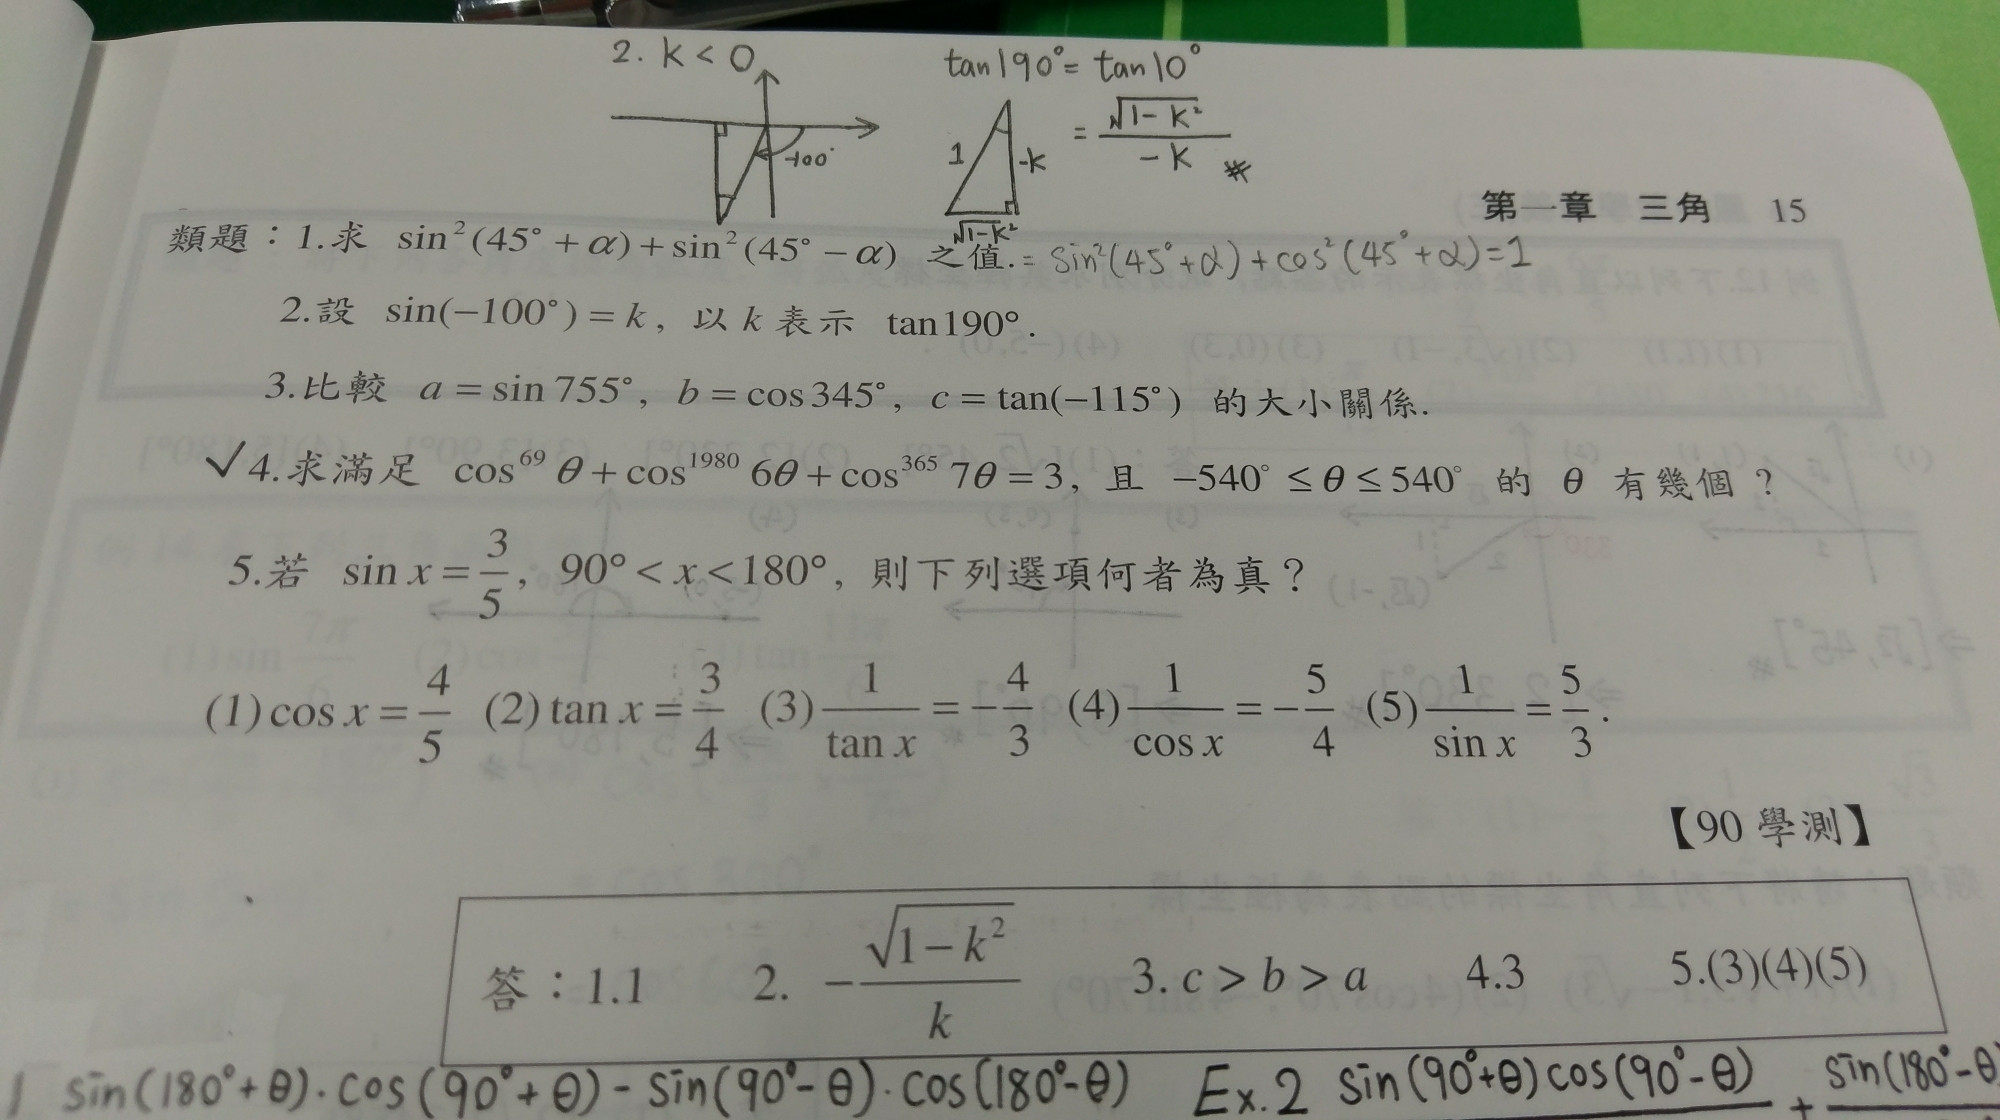 2. k < 0
tan190° = tan10°
-100°
1
-k
√1-k²
= √1-k² / -k ※
第一章 三角 15
類題：1.求 sin²(45°+α)+sin²(45°−α) 之值. = sin²(45°+α)+cos²(45°+α)=1
2.設 sin(−100°)=k, 以 k 表示 tan190°.
3.比較 a=sin755°, b=cos345°, c=tan(−115°) 的大小關係.
✓4.求滿足 cos⁶⁹θ+cos¹⁹⁸⁰6θ+cos³⁶⁵7θ=3, 且 −540°≤θ≤540° 的 θ 有幾個？
5.若 sin x=3/5, 90°<x<180°, 則下列選項何者為真？
(1)cos x=4/5 (2)tan x=3/4 (3)1/tan x=−4/3 (4)1/cos x=−5/4 (5)1/sin x=5/3.
【90 學測】
答：1.1 2. −√1−k²/k 3. c>b>a 4.3 5.(3)(4)(5)
1 sin(180°+θ)·cos(90°+θ)-sin(90°-θ)·cos(180°-θ) Ex.2 sin(90°+θ)cos(90°-θ) + sin(180°-θ)